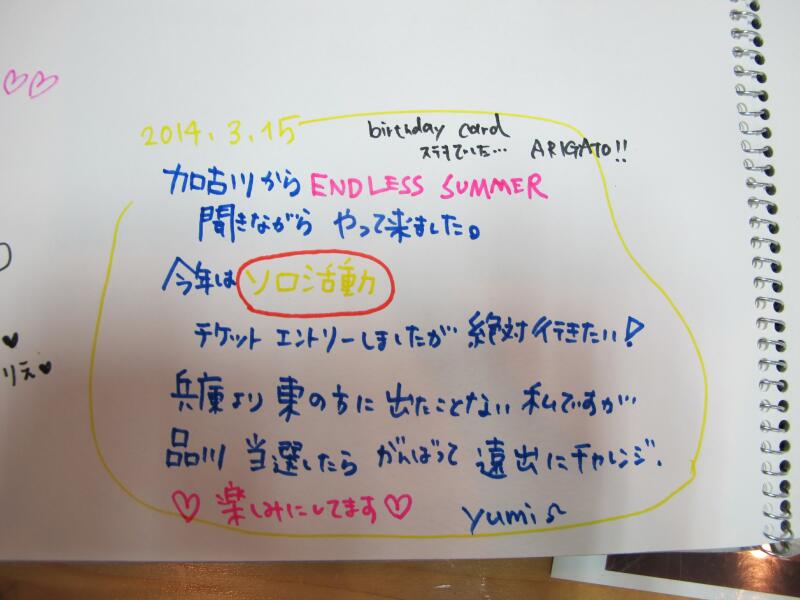 2014.3.15
birthday card
ステキでした… ARIGATO!!
加古川から ENDLESS SUMMER
聞きながら やって来ました。
今年は ソロ活動
チケット エントリーしましたが 絶対行きたい!
兵庫より 東の方に 出たことない 私ですが…
品川 当選したら がんばって 遠出にチャレンジ.
♡ 楽しみにしてます♡ yumi
りえ♥